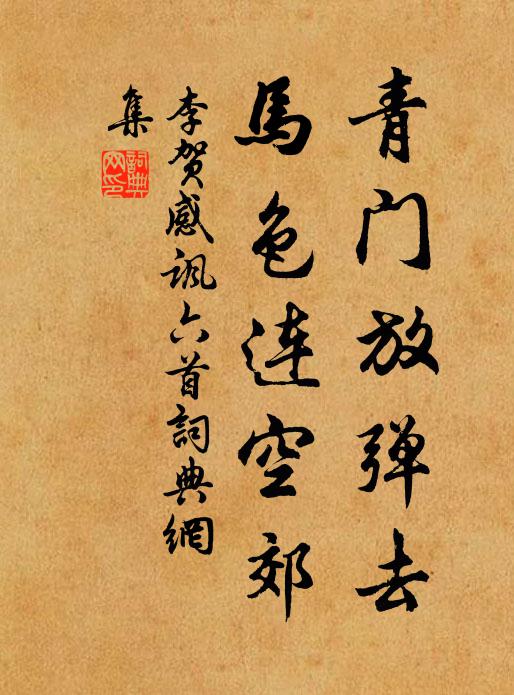 青门放弹去
馬色连空郊
李贺感讽六首詞典網
集
詞典
网印